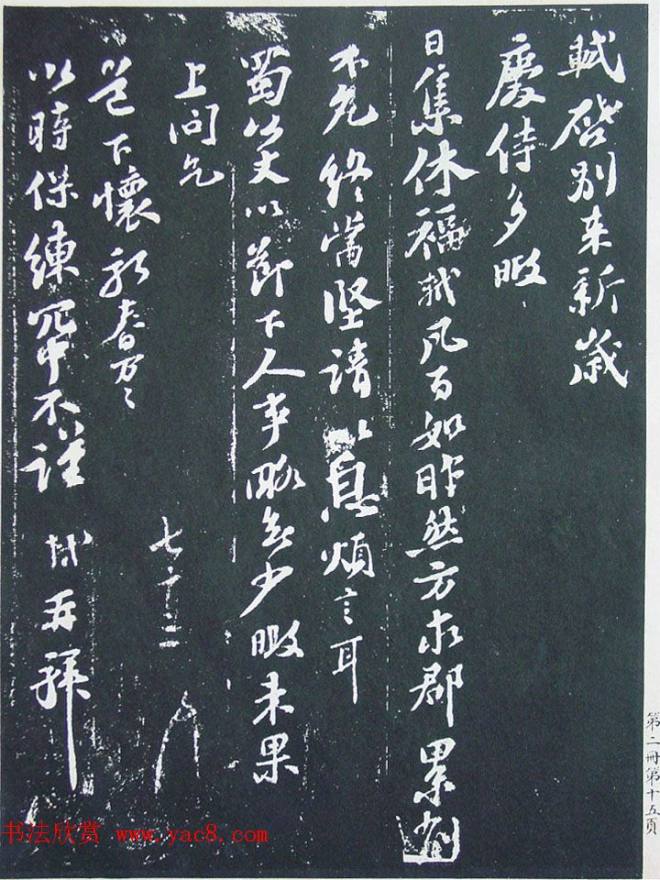 軾啓別來新歲
慶侍多暇
日集休福軾凡百如昨然方求郡累劄
不允終當堅請以息煩言耳
蜀公丈以節下人事略無少暇未果
上問乞
道下懷新春万〻
以時保練冗中不謹 軾再拜
七十二
第二冊第十五頁
书法欣赏 www.yac8.com